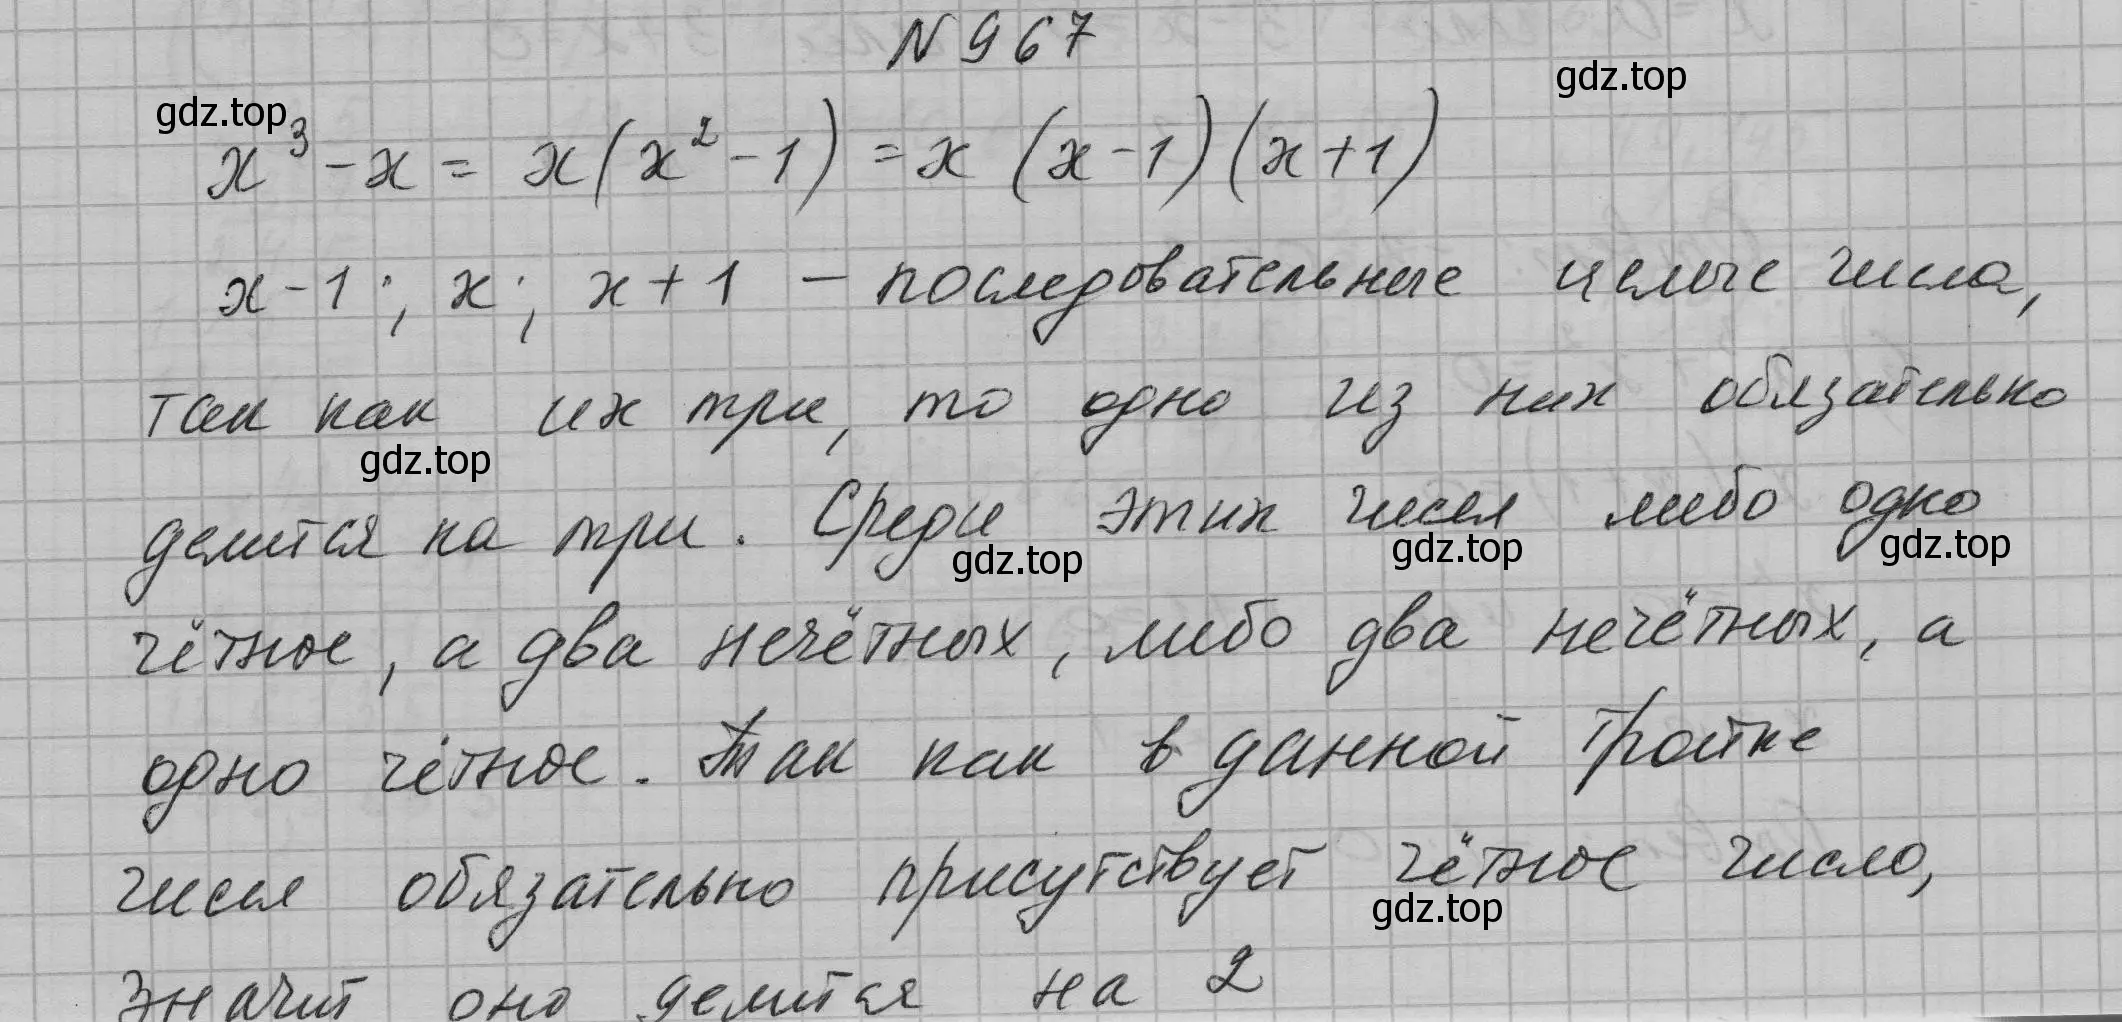 N 967
gdz.top
gdz.top
x³ - x = x(x² - 1) = x (x - 1)(x + 1)
x - 1; x; x + 1 – последовательные целые числа,
так как их три, то одно из них обязательно
gdz.top
делится на три. Среди этих чисел либо одно
gdz.top gdz.top gdz.top
чётное, а два нечётных, либо два нечётных, а
одно чётное. Так как в данной тройке
чисел обязательно присутствует чётное число,
gdz.top
значит оно делится на 2